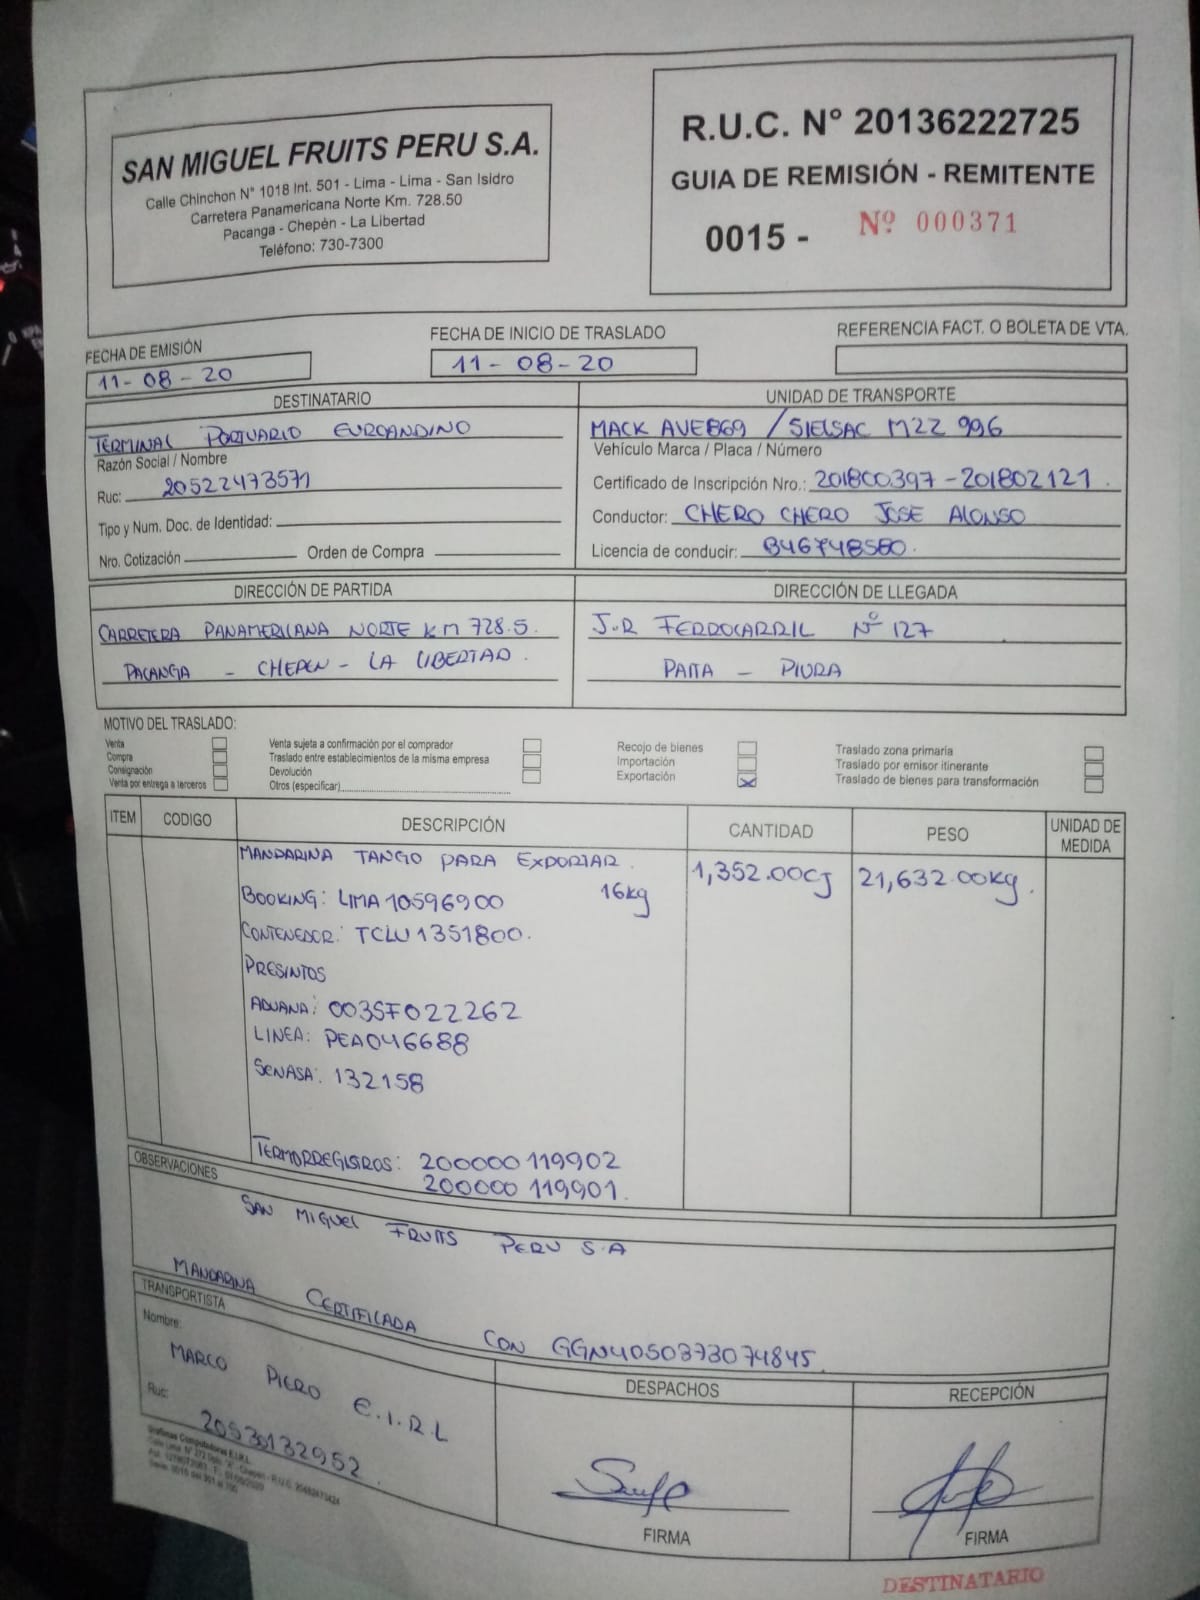 SAN MIGUEL FRUITS PERU S.A.
Calle Chinchon N° 1018 Int. 501 - Lima - Lima - San Isidro
Carretera Panamericana Norte Km. 728.50
Pacanga - Chepén - La Libertad
Teléfono: 730-7300
R.U.C. N° 20136222725
GUIA DE REMISIÓN - REMITENTE
0015 - Nº 000371
FECHA DE EMISIÓN
11-08-20
FECHA DE INICIO DE TRASLADO
11-08-20
REFERENCIA FACT. O BOLETA DE VTA.
DESTINATARIO
TERMINAL PORTUARIO EUROANDINO
Razón Social / Nombre
Ruc: 20522473571
Tipo y Num. Doc. de Identidad:
Nro. Cotización Orden de Compra
UNIDAD DE TRANSPORTE
MACK AVE869 / SIELSAC M2Z 996
Vehículo Marca / Placa / Número
Certificado de Inscripción Nro.: 201800397-201802121.
Conductor: CHERO CHERO JOSE ALONSO
Licencia de conducir: B46748580.
DIRECCIÓN DE PARTIDA
CARRETERA PANAMERICANA NORTE KM 728.5.
PACANGA - CHEPEN - LA LIBERTAD.
DIRECCIÓN DE LLEGADA
J.R FERROCARRIL Nº 127
PAITA - PIURA
MOTIVO DEL TRASLADO:
Venta
Compra
Consignación
Venta por entrega a terceros
Venta sujeta a confirmación por el comprador
Traslado entre establecimientos de la misma empresa
Devolución
Otros (especificar)
Recojo de bienes
Importación
Exportación X
Traslado zona primaria
Traslado por emisor itinerante
Traslado de bienes para transformación
ITEM CODIGO DESCRIPCIÓN CANTIDAD PESO UNIDAD DE MEDIDA
MANDARINA TANGO PARA EXPORTAR. 1,352.00CJ 21,632.00kg.
BOOKING: LIMA10596900 16kg
CONTENEDOR: TCLU1351800.
PRESINTOS
ADUANA: 003SF022262
LINEA: PEA046688
SENASA: 132158
TERMORREGISTROS: 200000119902
200000119901.
OBSERVACIONES
SAN MIGUEL FRUITS PERU S.A
MANDARINA CERTIFICADA CON GGN4050373074845.
TRANSPORTISTA
Nombre:
MARCO PIERO E.I.R.L
Ruc: 20530132952.
Gráficas Computadoras E.I.R.L.
DESPACHOS
FIRMA
RECEPCIÓN
FIRMA
DESTINATARIO